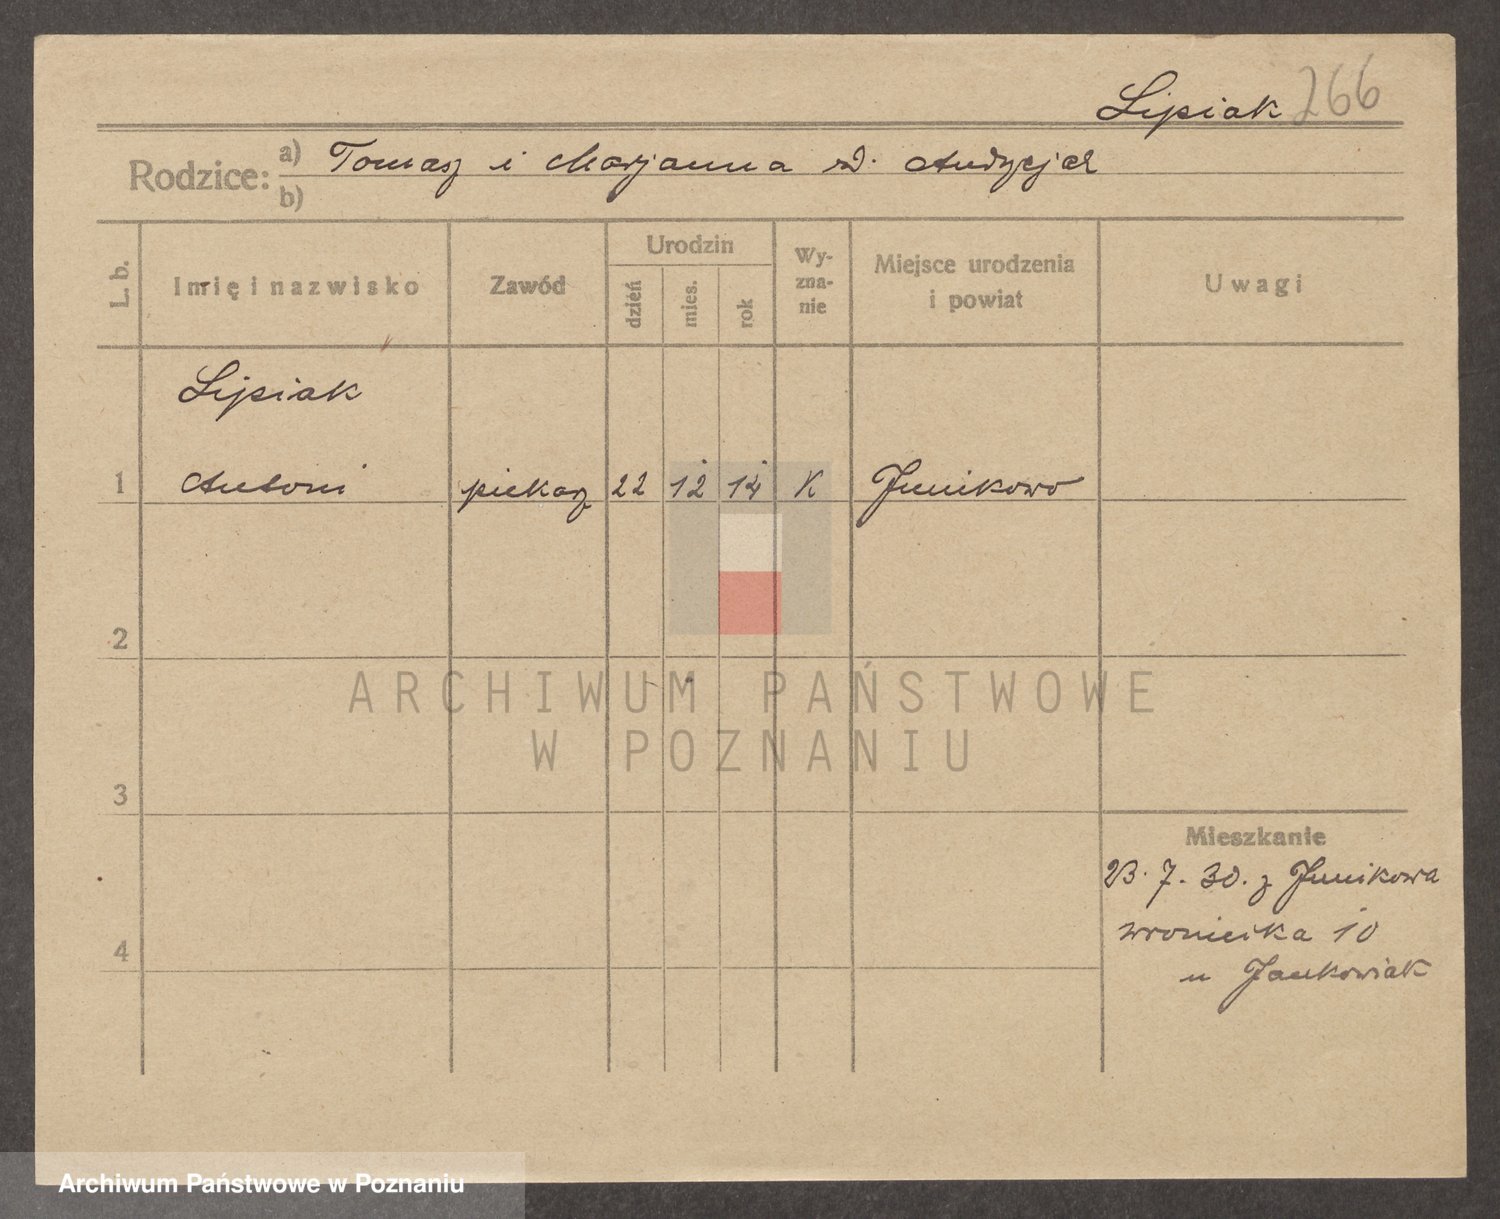 Lipsiak 266
Rodzice: a) Tomasz i Marjanna
b)
L. b.
Imię i nazwisko
Zawód
Urodzin
dzień
mies.
rok
Wy-
zna-
nie
Miejsce urodzenia
i powiat
Uwagi
Lipsiak
1 Antoni piekarz 22 12 14 K Junikowo
2
3
4
Mieszkanie
23. 7. 30. z Junikowa
wroniecka 10
u Jankowiak
ARCHIWUM PAŃSTWOWE
W POZNANIU
Archiwum Państwowe w Poznaniu